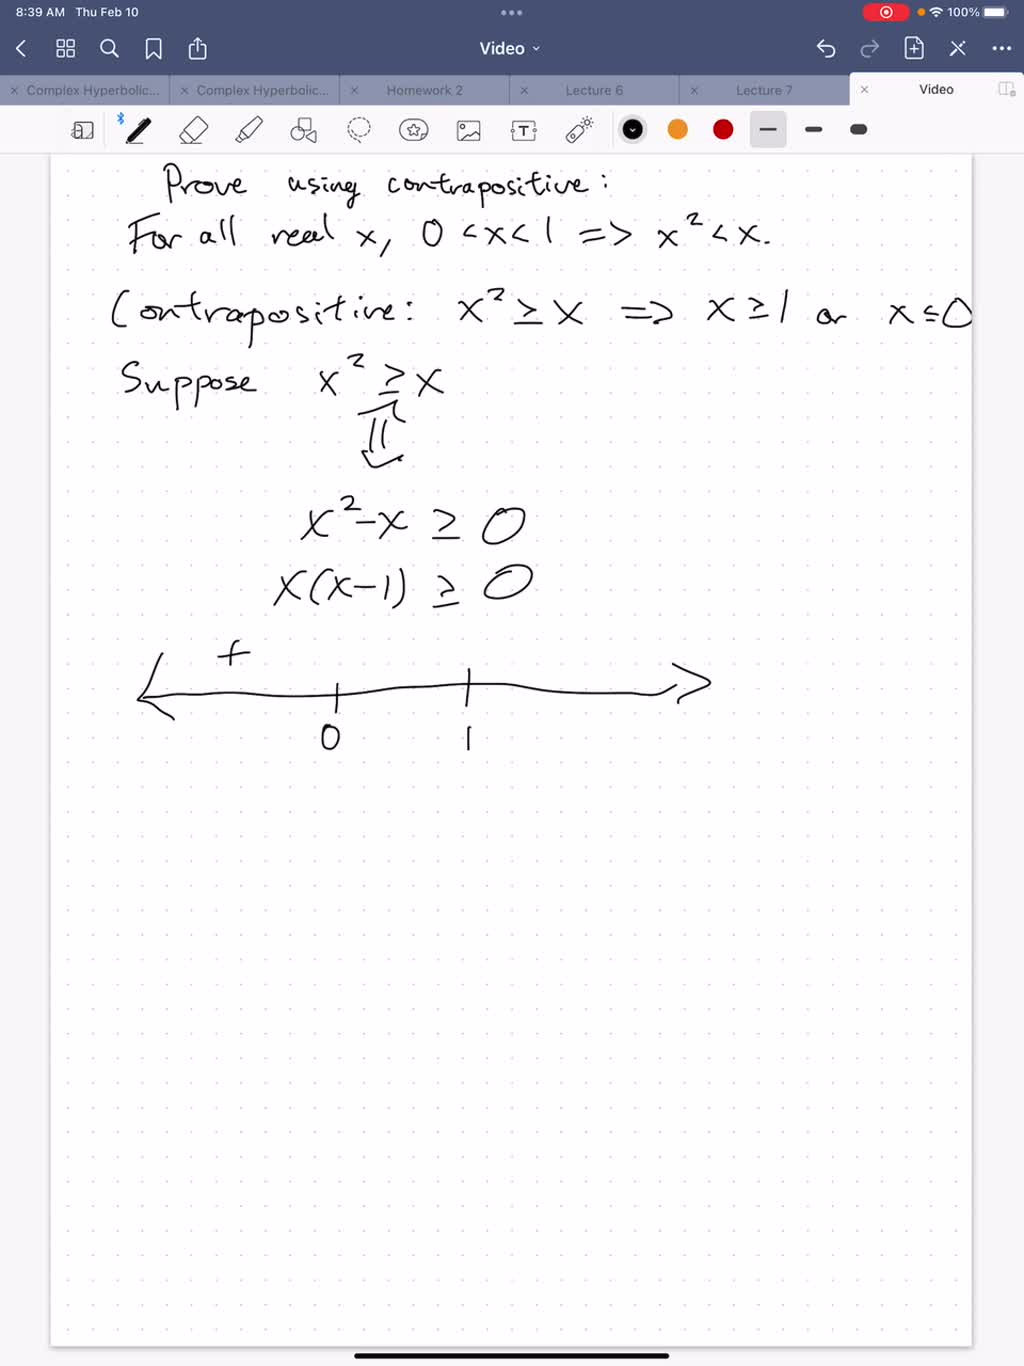 8:39 AM Thu Feb 10
100%
Video
Complex Hyperbolic... Complex Hyperbolic... Homework 2 Lecture 6 Lecture 7 Video
T
Prove using contrapositive:
For all real x, 0 < x < 1 => x² < x.
Contrapositive: x² ≥ x => x ≥ 1 or x ≤ 0
Suppose x² ≥ x
⇕
x² - x ≥ 0
x(x-1) ≥ 0
+
0 1